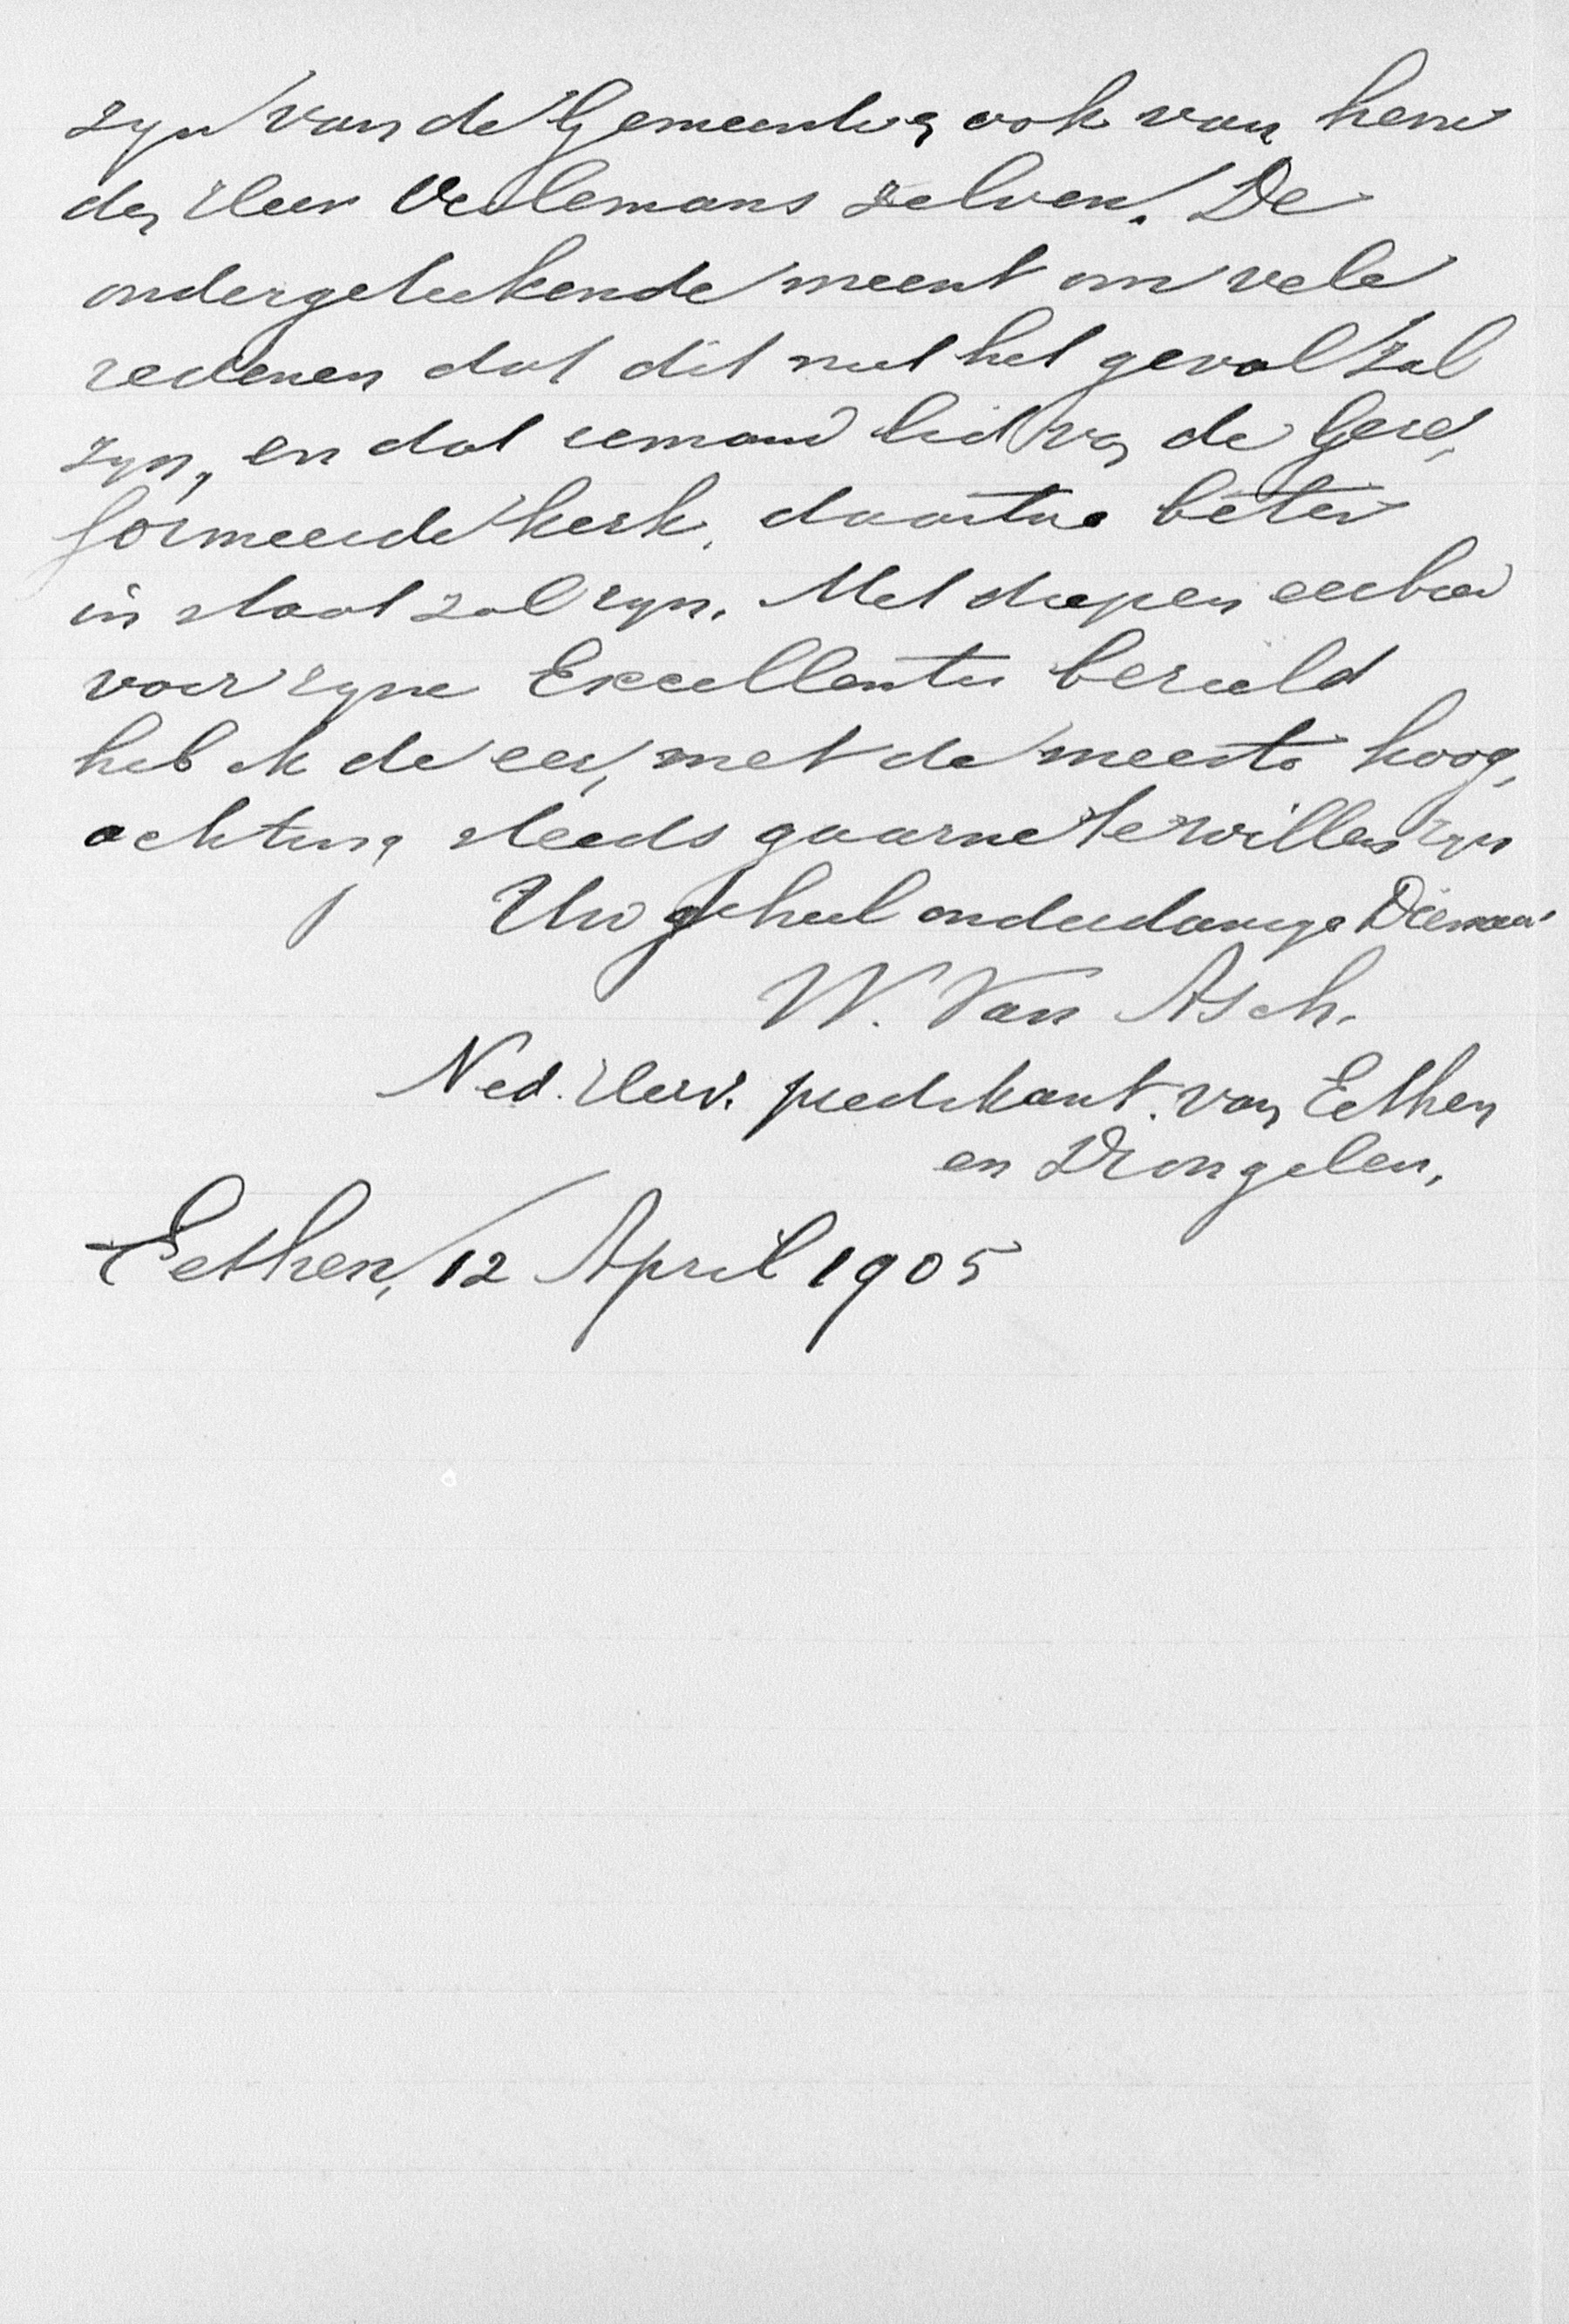 zyn van de Gemeente, ook van hem
den Heer Veulemans zelven. De
ondergeteekende meent om vele
redenen dat dit niet het geval zal
zyn, en dat iemand lid van de Gere,
formeerde kerk, daartoe beter
in staat zal zyn. Met diepen eerbied
voor zyne Excellentie bezield
heb ik de eer, met de meeste hoog,
achting steeds gaarne te willen zyn
Uw geheel onderdanige Dienaar
W. Van Asch.
Ned. Herv. predikant van Eethen
en Drongelen,
Eethen, 12 April 1905